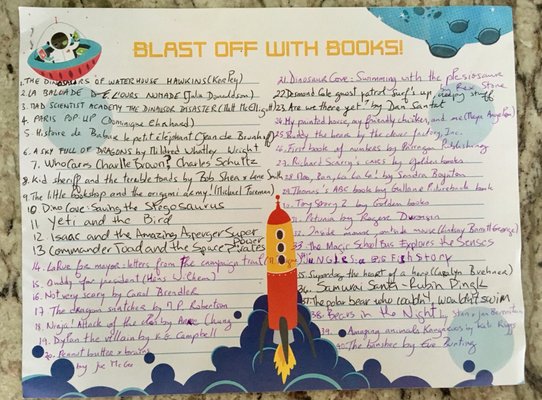 BLAST OFF WITH BOOKS!
1. THE DINOSAURS OF WATERHOUSE HAWKINS (Kerley)
2. LA BALLADE DE L'OURS NOMADE (Julia Donaldson)
3. MAD SCIENTIST ACADEMY THE DINOSAUR DISASTER (Matt McElligott)
4. PARIS POP UP (Dominique Ehrhard)
5. Histoire de Babar le petit elephant (Jean de Brunhoff)
6. A SKY FULL OF DRAGONS by Mildred Whatley Wright
7. Who Cares Charlie Brown? Charles Schultz
8. Kid Sheriff and the terrible toads by Bob Shea & Lane Smith
9. The little bookshop and the origami army! (Michael Foreman)
10 Dino Cove: Saving the Stegosaurus
11 Yeti and the Bird
12 Isaac and the Amazing Asperger Super Power
13 Commander Toad and the Space Pirates
14. LaRue for mayor: letters from the campaign trail
15. Daddy for president (Hans Wilhem)
16. Not very scary by Carol Brendler
17. The dragon snatcher by M.P. Robertson
18. Ninja! Attack of the clan by Arree Chung
19. Dylan the villain by K.G. Campbell
20. Peanut butter & brains
by Joe McGee
21. Dinosaur Cove: Swimming with the plesiosaur by Rex Stone
22. Desmond Cole ghost patrol Surf's up, creepy stuff
23. Are we there yet? by Dan Santat
24. My painted house, my friendly chicken, and me (Maya Angelou)
25. Buddy the bear by the clever factory, Inc.
26. First book of numbers by Parragon Publishing
27. Richard Scarry's cars by Golden books
28. Moo, Baa, La La La! by Sandra Boynton
29. Thomas's ABC book by Gullane Pictureback book
30. Toy Story 2 by Golden books
31. Petunia by Roger Duvoisin
32. Inside mouse, outside mouse (Lindsay Barrett George)
33. The Magic School Bus Explores the Senses
34. JANGLES: a BIG FISH story
35. Superdog the heart of a hero (Caralyn Buehner)
36. Samurai Santa - Rubin Pingk
37. The polar bear who couldn't, wouldn't swim
38. Bears in the Night by Stan & Jan Berenstain
39. Amazing animals Kangaroos by Kate Riggs
40. The banshee by Eve Bunting